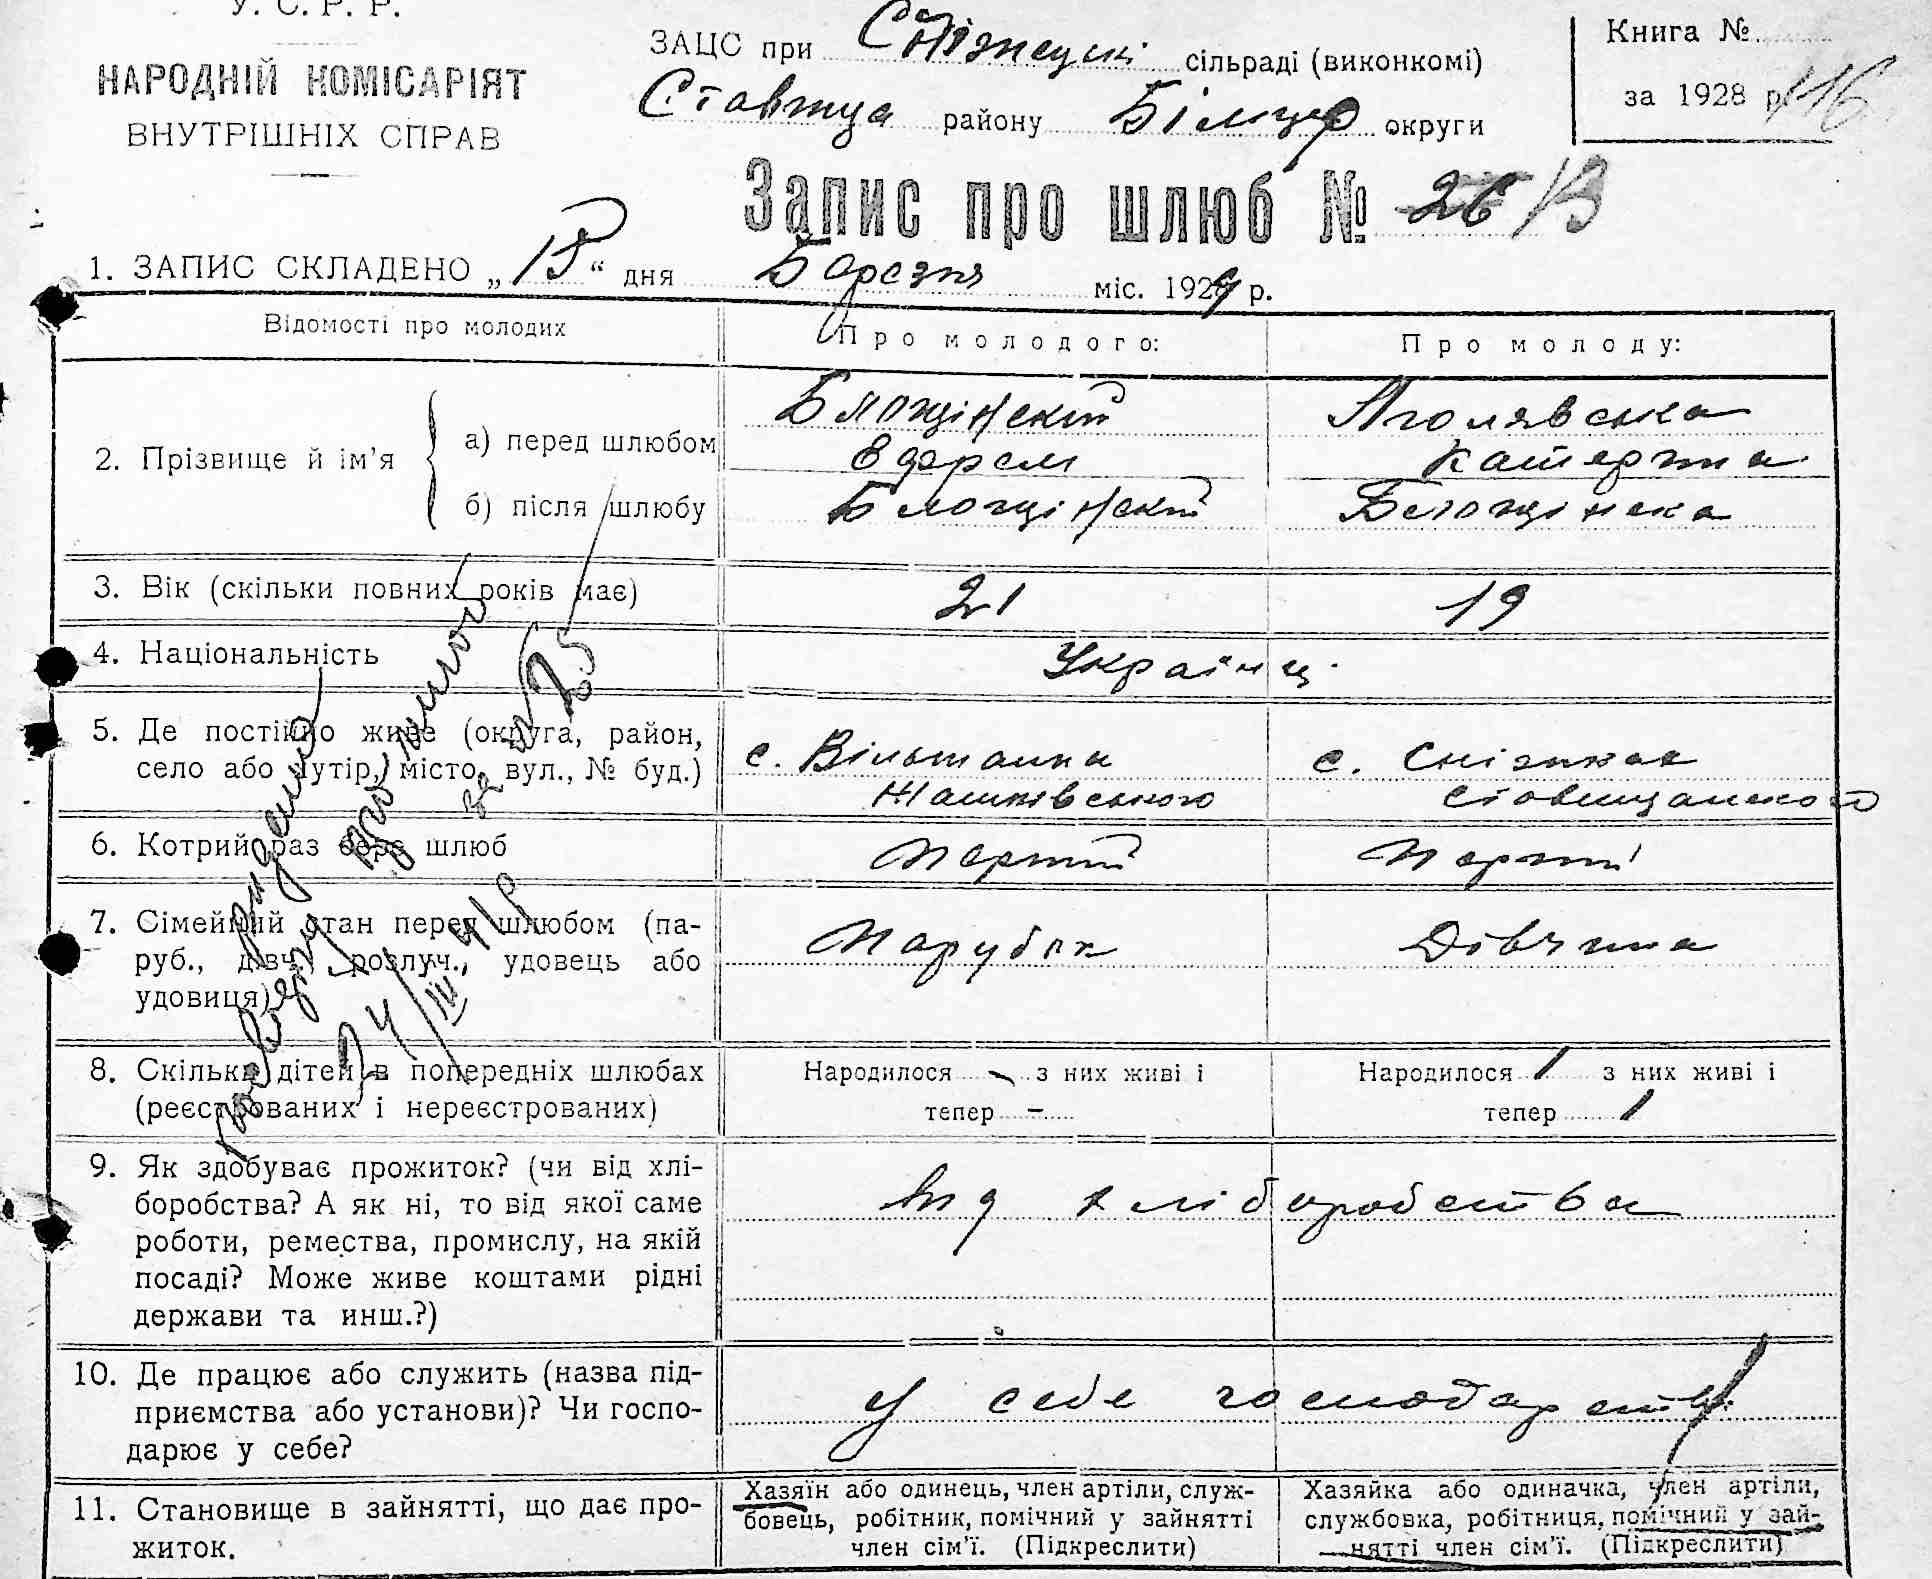 У. С. Р. Р.
НАРОДНІЙ КОМІСАРІЯТ
ВНУТРІШНІХ СПРАВ
ЗАЦС при сільраді (виконкомі)
району округи
Книга №
за 1928 р. 116
Запис про шлюб № 26
1. ЗАПИС СКЛАДЕНО „ “ дня Березня міс. 1929 р.
Відомості про молодих
Про молодого:
Про молоду:
2. Прізвище й ім’я
а) перед шлюбом
б) після шлюбу
Катерина
3. Вік (скільки повних років має)
21
19
4. Національність
Українці
5. Де постійно живе (округа, район,
село або хутір, місто, вул., № буд.)
с. Вільшанка
Жашківського
с. Сніжки
6. Котрий раз бере шлюб
Перший
Перший
7. Сімейний стан перед шлюбом (па-
руб., дівч., розлуч., удовець або
удовиця)
Парубок
Дівчина
8. Скільки дітей в попередніх шлюбах
(реєстрованих і нереєстрованих)
Народилося - з них живі і
тепер -
Народилося 1 з них живі і
тепер 1
9. Як здобуває прожиток? (чи від хлі-
боробства? А як ні, то від якої саме
роботи, ремества, промислу, на якій
посаді? Може живе коштами рідні
держави та инш.?)
від хліборобства
10. Де працює або служить (назва під-
приємства або установи)? Чи госпо-
дарює у себе?
у себе
11. Становище в зайнятті, що дає про-
житок.
Хазяїн або одинець, член артіли, служ-
бовець, робітник, помічний у зайнятті
член сім’ї. (Підкреслити)
Хазяйка або одиначка, член артіли,
службовка, робітниця, помічний у зай-
нятті член сім’ї. (Підкреслити)